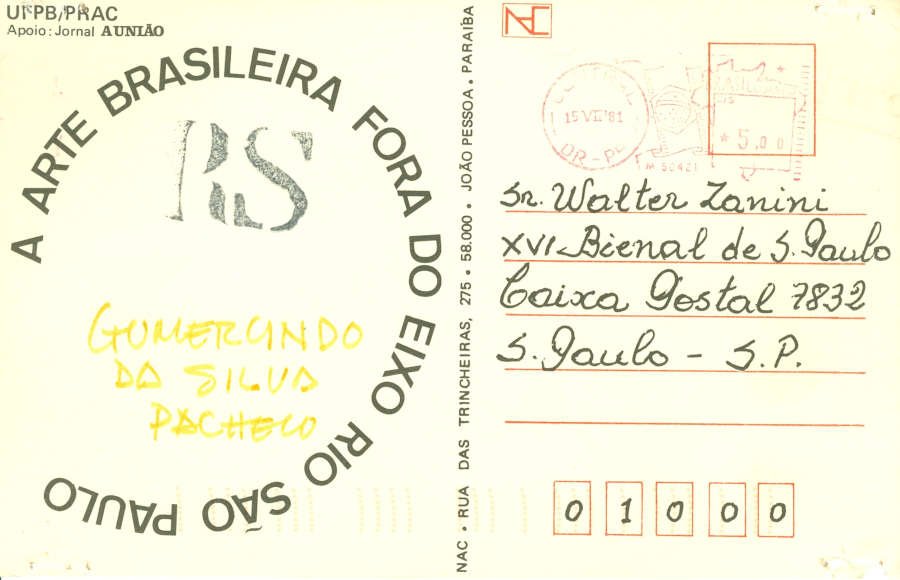 UFPB/PRAC
Apoio: Jornal A UNIÃO
A ARTE BRASILEIRA FORA DO EIXO RIO SÃO PAULO
RS
GUMERCINDO
DA SILVA
PACHECO
NAC • RUA DAS TRINCHEIRAS, 275 • 58.000 • JOÃO PESSOA • PARAÍBA
NAC
15 VII '81
DR-P
*5,00
Sr. Walter Zanini
XVI Bienal de S. Paulo
Caixa Postal 7832
S. Paulo - S.P.
0 1 0 0 0